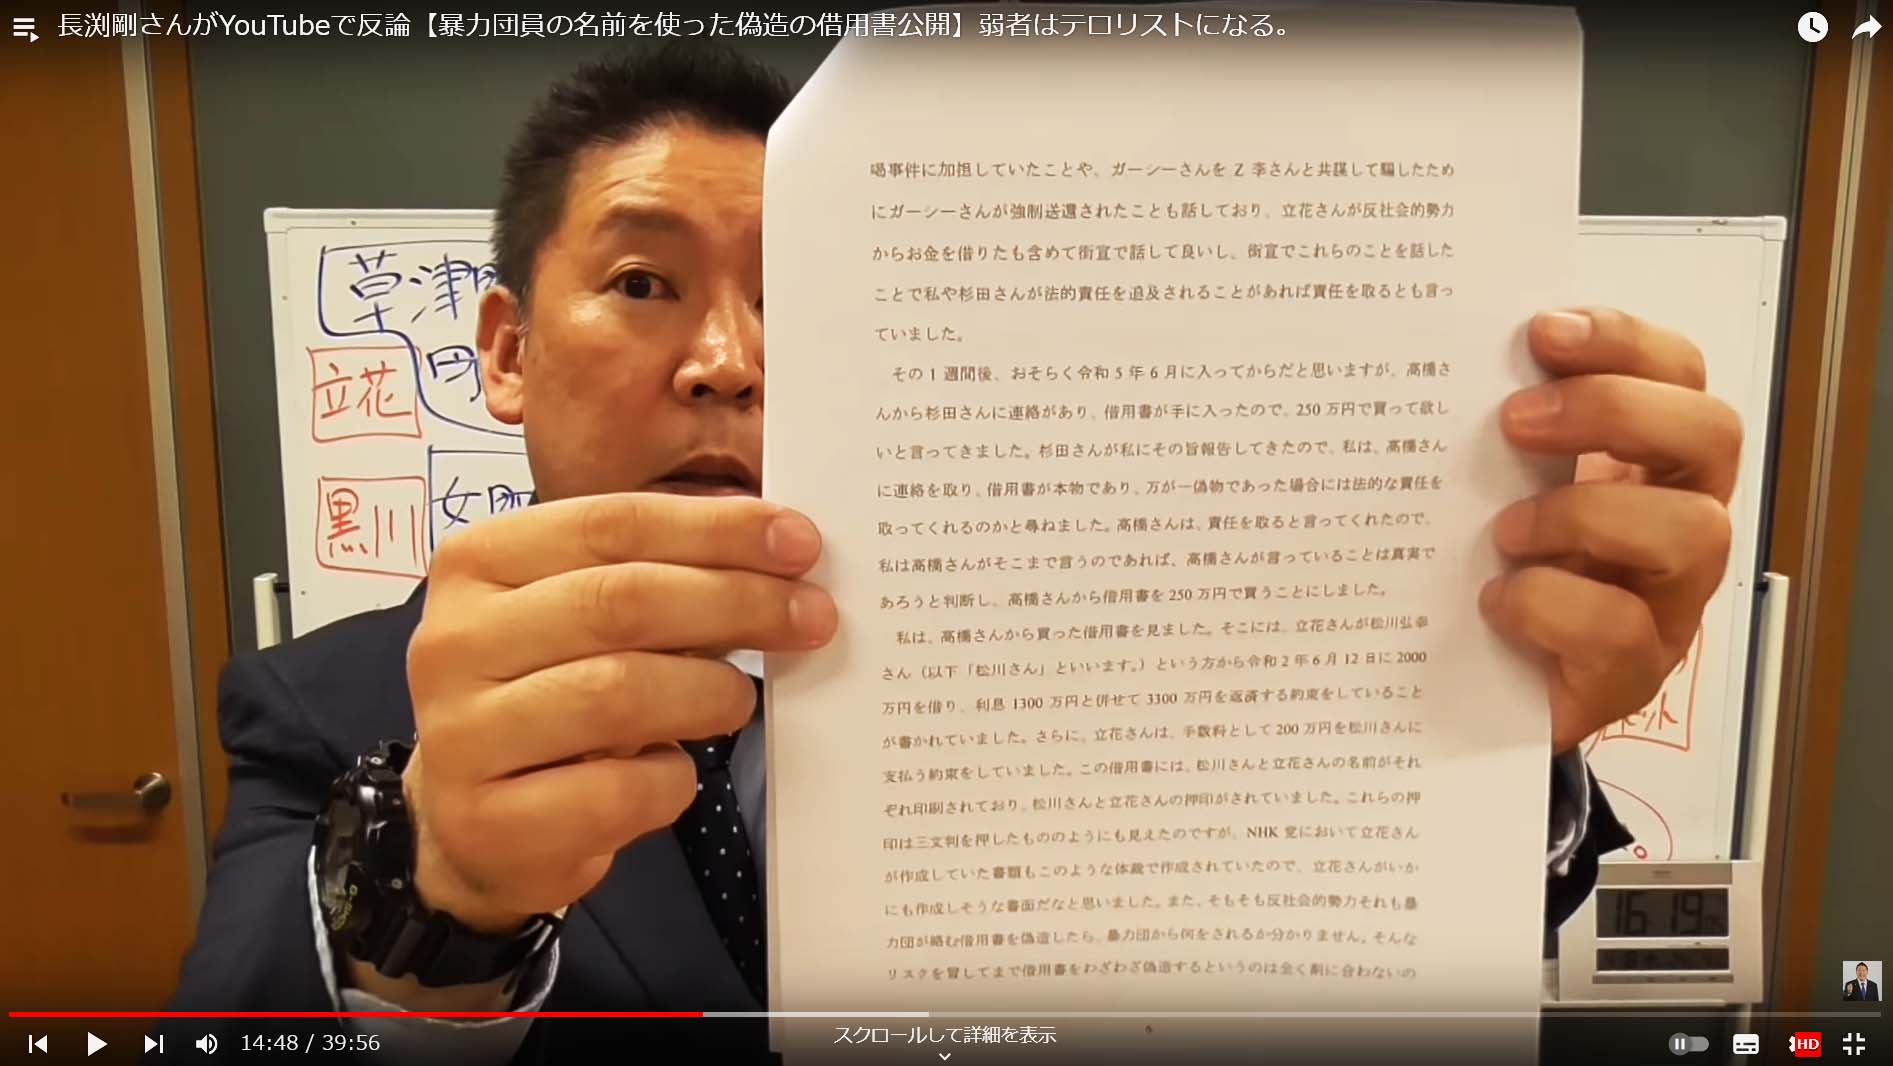 長渕剛さんがYouTubeで反論【暴力団員の名前を使った偽造の借用書公開】弱者はテロリストになる。
喝事件に加担していたことや、ガーシーさんを Z 李さんと共謀して騙したため
にガーシーさんが強制送還されたことも話しており、立花さんが反社会的勢力
からお金を借りたも含めて街宣で話して良いし、街宣でこれらのことを話した
ことで私や杉田さんが法的責任を追及されることがあれば責任を取るとも言っ
ていました。
その 1 週間後、おそらく令和 5 年 6 月に入ってからだと思いますが、高橋さ
んから杉田さんに連絡があり、借用書が手に入ったので、250 万円で買って欲し
いと言ってきました。杉田さんが私にその旨報告してきたので、私は、高橋さん
に連絡を取り、借用書が本物であり、万が一偽物であった場合には法的な責任を
取ってくれるのかと尋ねました。高橋さんは、責任を取ると言ってくれたので、
私は高橋さんがそこまで言うのであれば、高橋さんが言っていることは真実で
あろうと判断し、高橋さんから借用書を 250 万円で買うことにしました。
私は、高橋さんから買った借用書を見ました。そこには、立花さんが松川弘幸
さん（以下「松川さん」といいます。）という方から令和 2 年 6 月 12 日に 2000
万円を借り、利息 1300 万円と併せて 3300 万円を返済する約束をしていること
が書かれていました。さらに、立花さんは、手数料として 200 万円を松川さんに
支払う約束をしていました。この借用書には、松川さんと立花さんの名前がそれ
ぞれ印刷されており、松川さんと立花さんの押印がされていました。これらの押
印は三文判を押したもののようにも見えたのですが、NHK 党において立花さん
が作成していた書類もこのような体裁で作成されていたので、立花さんがいか
にも作成しそうな書面だなと思いました。また、そもそも反社会的勢力それも暴
力団が絡む借用書を偽造したら、暴力団から何をされるか分かりません。そんな
リスクを冒してまで借用書をわざわざ偽造するというのは全く割に合わないの
6
草津
円
立花
女
黒川
ット
16 19
スクロールして詳細を表示
14:48 / 39:56
HD